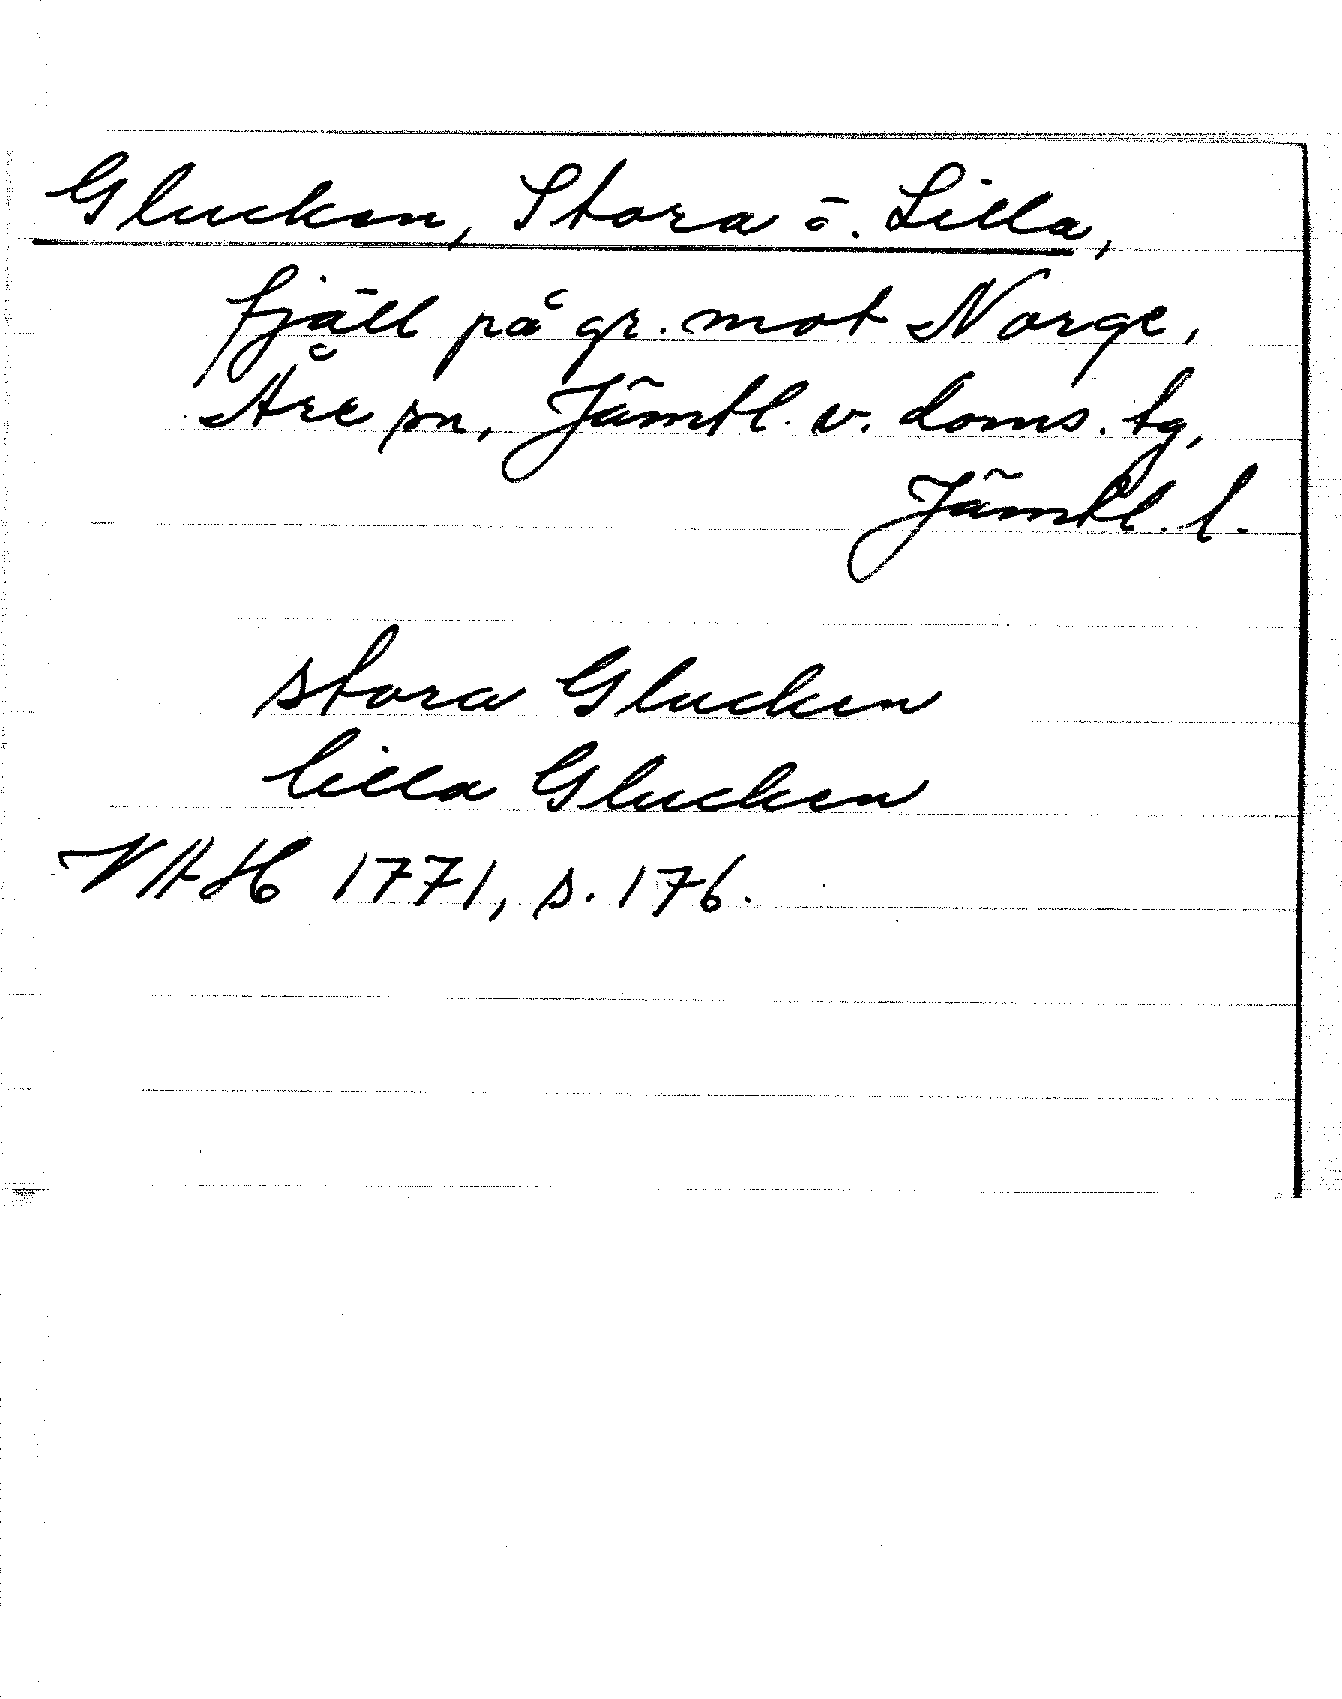 Glucken, Stora o. Lilla,
fjäll på gr. mot Norge,
Åre sn, Jämtl. v. doms. tg,
Jämtl. l.
stora Glucken
lilla Glucken
VAH 1771, s. 176.